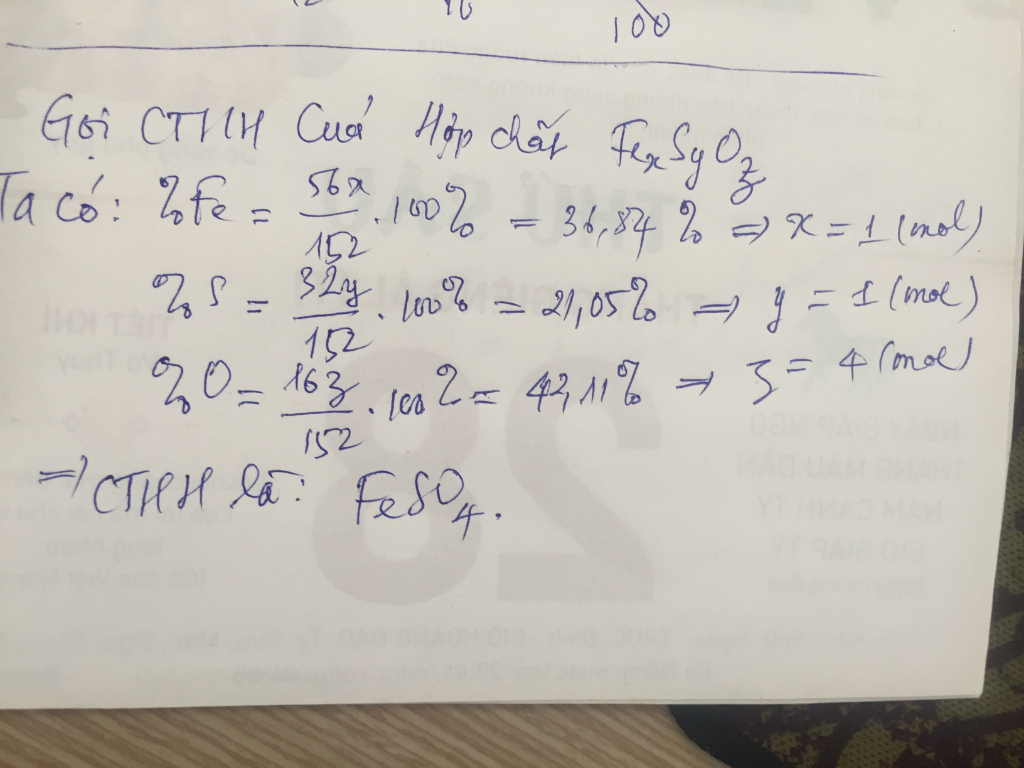 100
Gọi CTHH Cuả Hợp chất FexSyOz
Ta có: %Fe = 56x/152 . 100% = 36,84% => x = 1 (mol)
%S = 32y/152 . 100% = 21,05% => y = 1 (mol)
%O = 16z/152 . 100% = 42,11% => z = 4 (mol)
=> CTHH là: FeSO4.